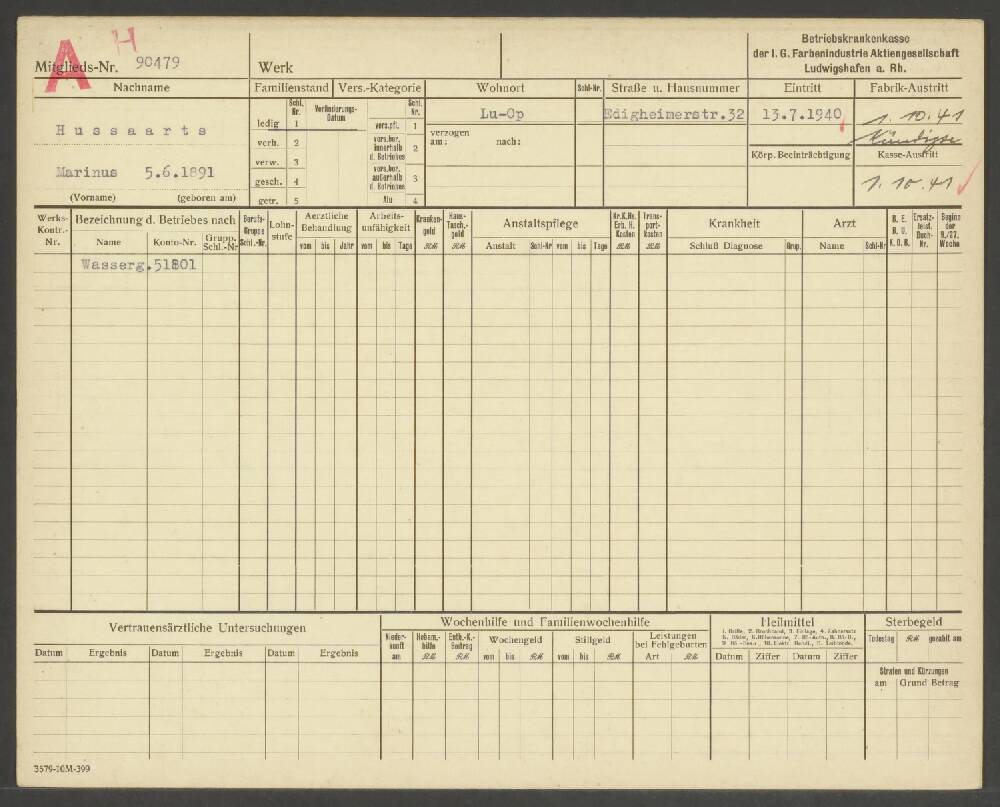 A H
Mitglieds-Nr. 90479
Werk
Betriebskrankenkasse
der I. G. Farbenindustrie Aktiengesellschaft
Ludwigshafen a. Rh.
Nachname
Familienstand Vers.-Kategorie Wohnort Schl-Nr. Straße u. Hausnummer Eintritt Fabrik-Austritt
Hussaarts
Schl. Nr. Veränderungs-Datum Schl. Nr.
Lu-Op Edigheimerstr.32 13.7.1940 1. 10. 41
ledig 1 vers.pfl. 1
verh. 2 vers.ber. innerhalb d. Betriebes 2
verzogen am: nach:
Körp. Beeinträchtigung Kasse-Austritt
verw. 3
gesch. 4 vers.ber. außerhalb d. Betriebes 3
getr. 5 Alu 4
Marinus 5.6.1891
1. 10. 41
(Vorname) (geboren am)
Werks-Kontr.-Nr. Bezeichnung d. Betriebes nach Berufs-Gruppe Schl.-Nr. Lohn-stufe Aerztliche Behandlung Arbeits-unfähigkeit Kranken-geld Haus-Tasch.-geld Anstaltspflege Kr.K.Hs. Erh. H. Kosten Trans-port-kosten Krankheit Arzt B. E. B. U. K. O. B. Ersatz-leist. Buch-Nr. Beginn der 9./27. Woche
Name Konto-Nr. Grupp. Schl.-Nr. vom bis Jahr vom bis Tage RM RM Anstalt Schl-Nr vom bis Tage RM RM Schluß Diagnose Grup. Name Schl-Nr
Wasserg. 51801
Vertrauensärztliche Untersuchungen
Wochenhilfe und Familienwochenhilfe
Heilmittel
Sterbegeld
Datum Ergebnis Datum Ergebnis Datum Ergebnis
Nieder-kunft am Hebam.-hilfe RM Entb.-K.-Beitrag RM Wochengeld vom bis RM Stillgeld vom bis RM Leistungen bei Fehlgeburten Art RM
Datum Ziffer Datum Ziffer
Todestag RM gezahlt am
Strafen und Kürzungen
am Grund Betrag
3579-10M-399